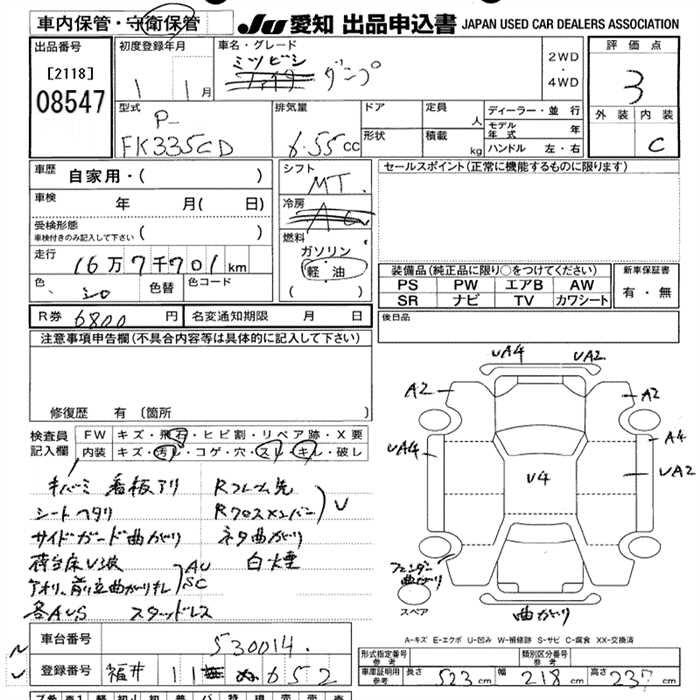 車内保管・守衛保管
JU 愛知 出品申込書 JAPAN USED CAR DEALERS ASSOCIATION
出品番号
[2118]
08547
初度登録年月
1 1月
車名・グレード
ミツビシ
ダンプ
2WD
・
4WD
評価点
3
外装 内装
C
型式
P-
FK335CD
排気量
6.55cc
ドア
形状
定員 人
積載 kg
ディーラー・並行
モデル年式 年
ハンドル 左・右
車歴 自家用・( )
車検 年 月( 日)
受検形態
車検付きのみ記入して下さい ( )
走行 16万7千701km
色 シロ 色替 色コード
シフト
MT.
冷房
燃料
ガソリン
軽・油
( )
セールスポイント(正常に機能するものに限ります)
装備品(純正品に限り○をつけてください)
PS PW エアB AW
SR ナビ TV カワシート
新車保証書
有・無
R券 6800円 名変通知期限 月 日
後日品
注意事項申告欄(不具合内容等は具体的に記入して下さい)
修復歴 有 (箇所 )
検査員記入欄
FW キズ・飛石・ヒビ割・リペア跡・X要
内装 キズ・汚レ・コゲ・穴・スレ・キレ・破レ
キバミ 看板アリ Rフレーム先
シートヘタリ Rクロスメンバー V
サイドガード曲がり ネタ曲がり
荷台床V3枚 白煙
アオリ、前立曲がりキレ AU SC
各AUS スタッドレス
UA4 UA2
A2 A2
UA4 A4
V4 UA2
フェンダー曲がり
スペア
曲がり
A-キズ E-エクボ U-凹み W-補修跡 S-サビ C-腐食 XX-交換済
車台番号 530014.
登録番号 福井 11 ぬ 652
形式指定番号
参考
類別区分番号
参考
車庫証明用
参考
長さ 523cm 幅 218cm 高さ 237cm